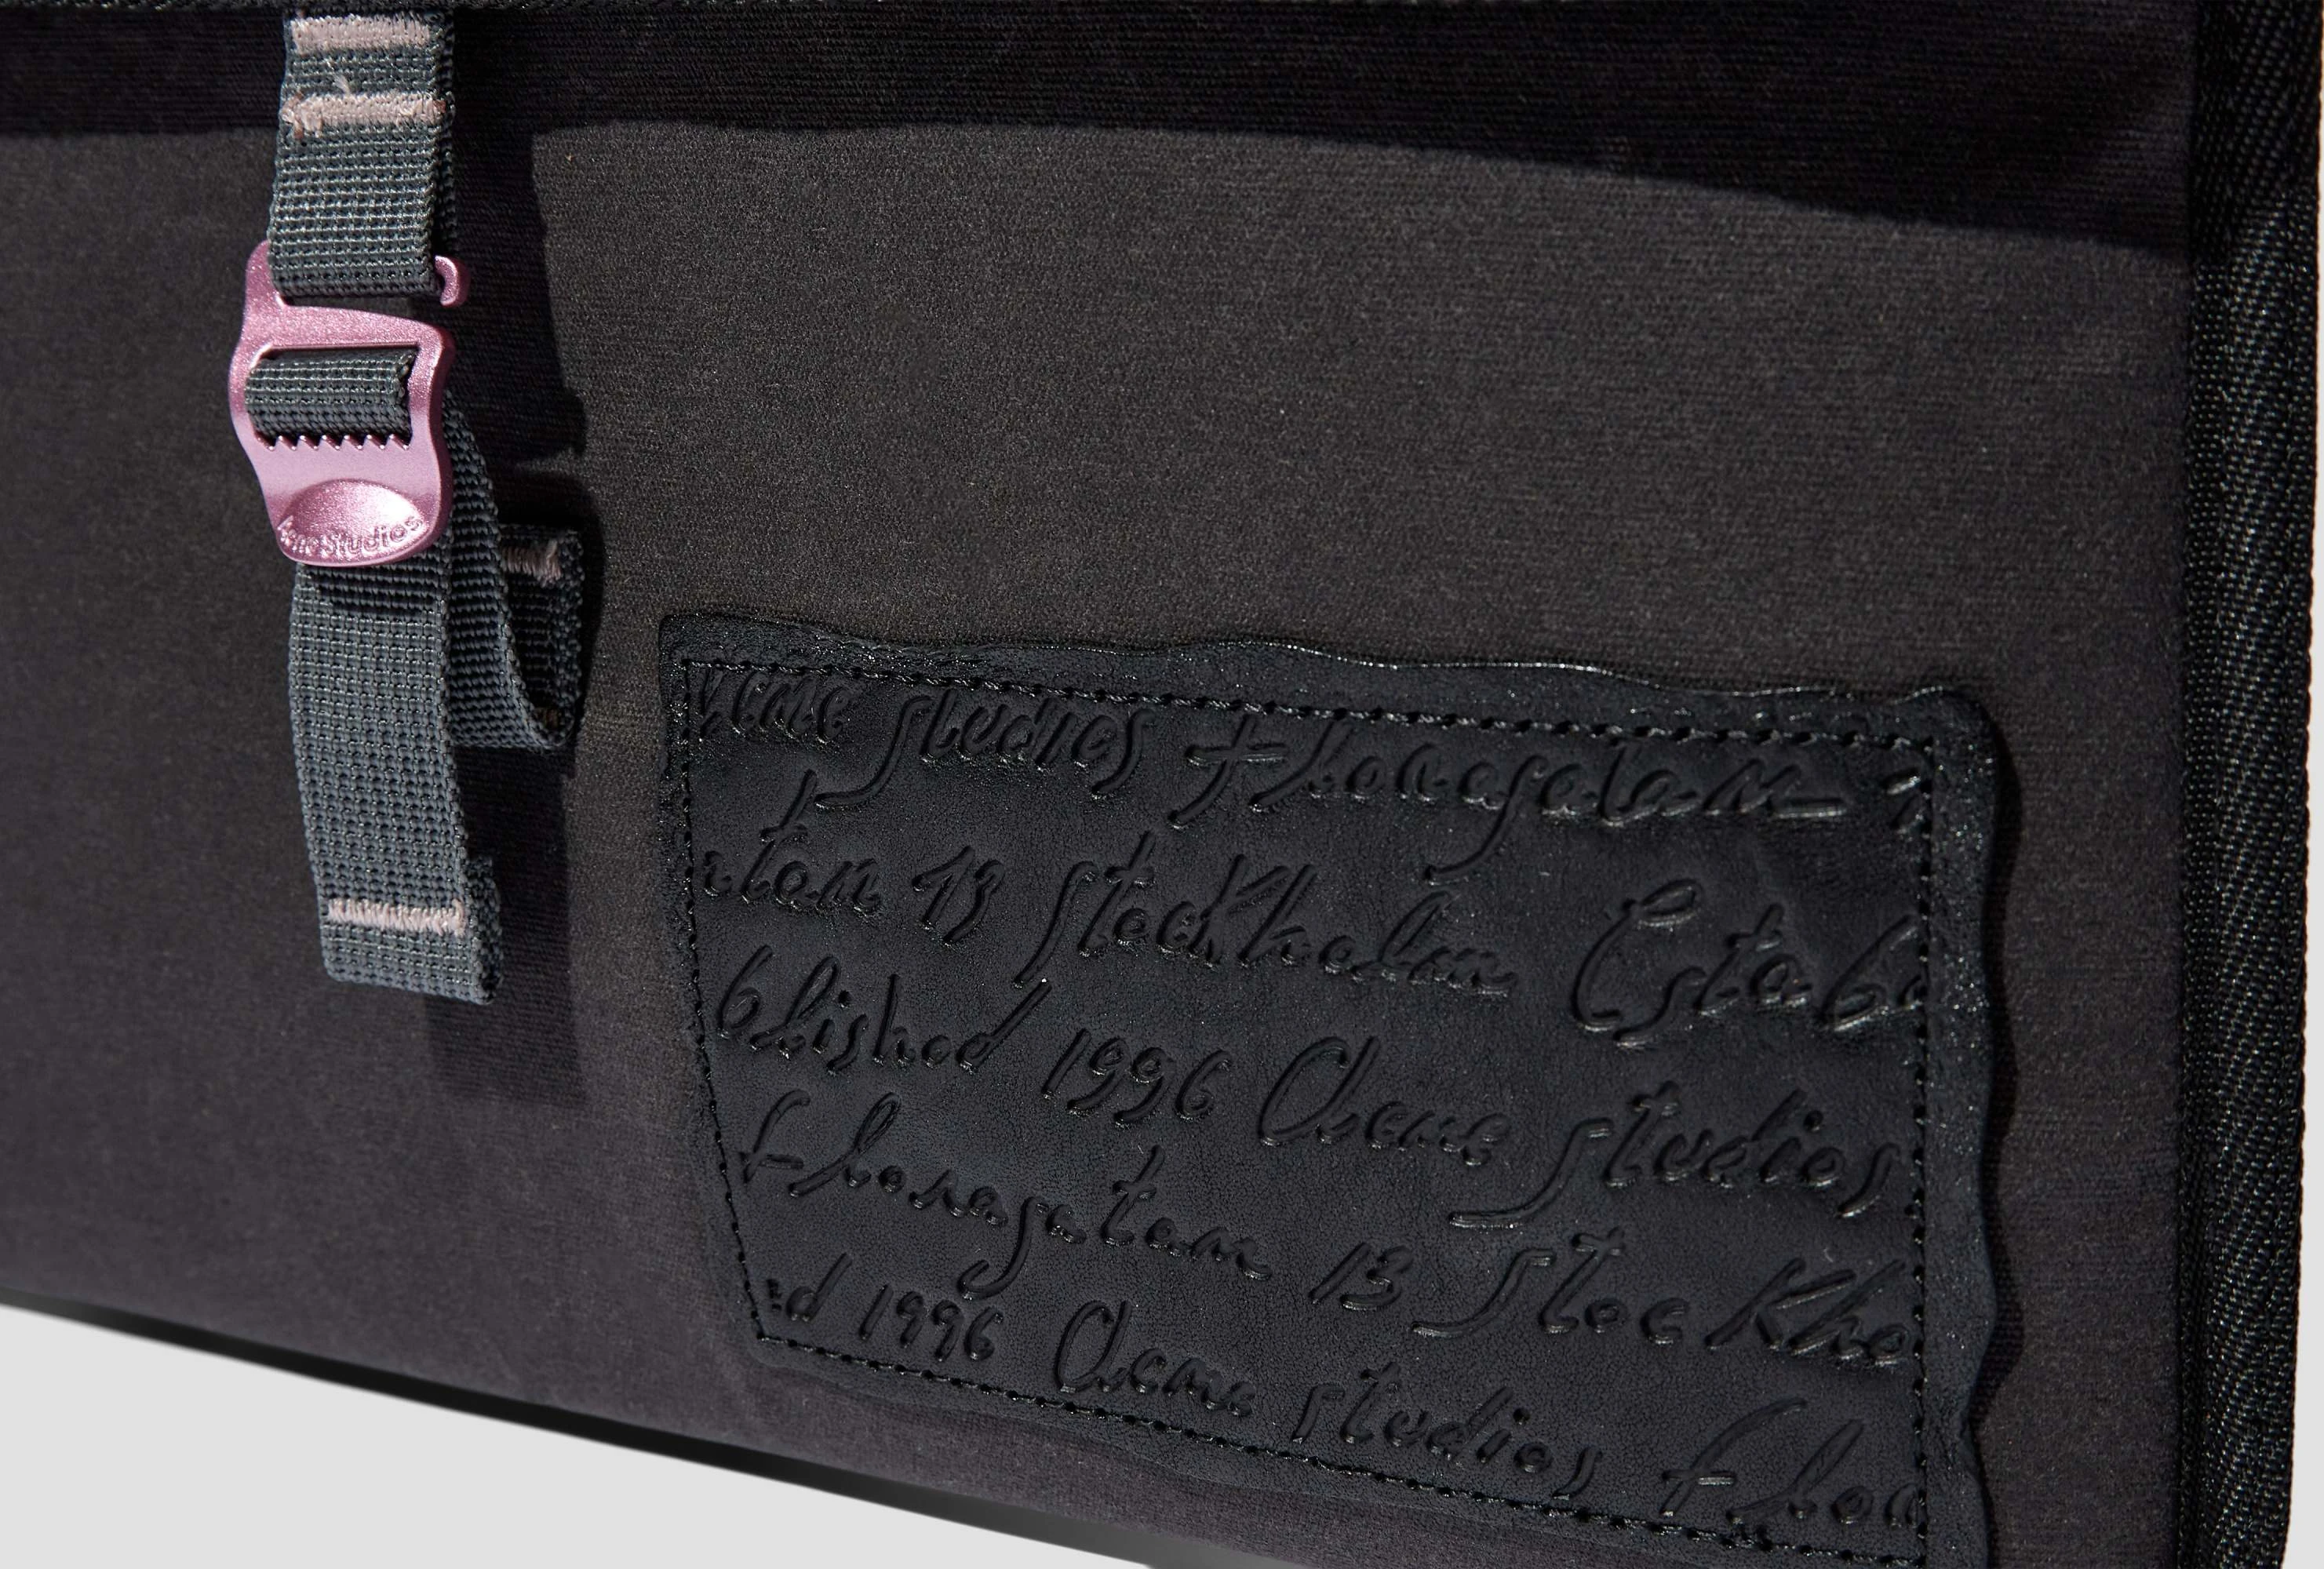 Acne Studios
Acne Studios Floragatan 1
atan 13 Stockholm Estab
blished 1996 Acne Studios
Floragatan 13 Stockho
ed 1996 Acne Studios Flor